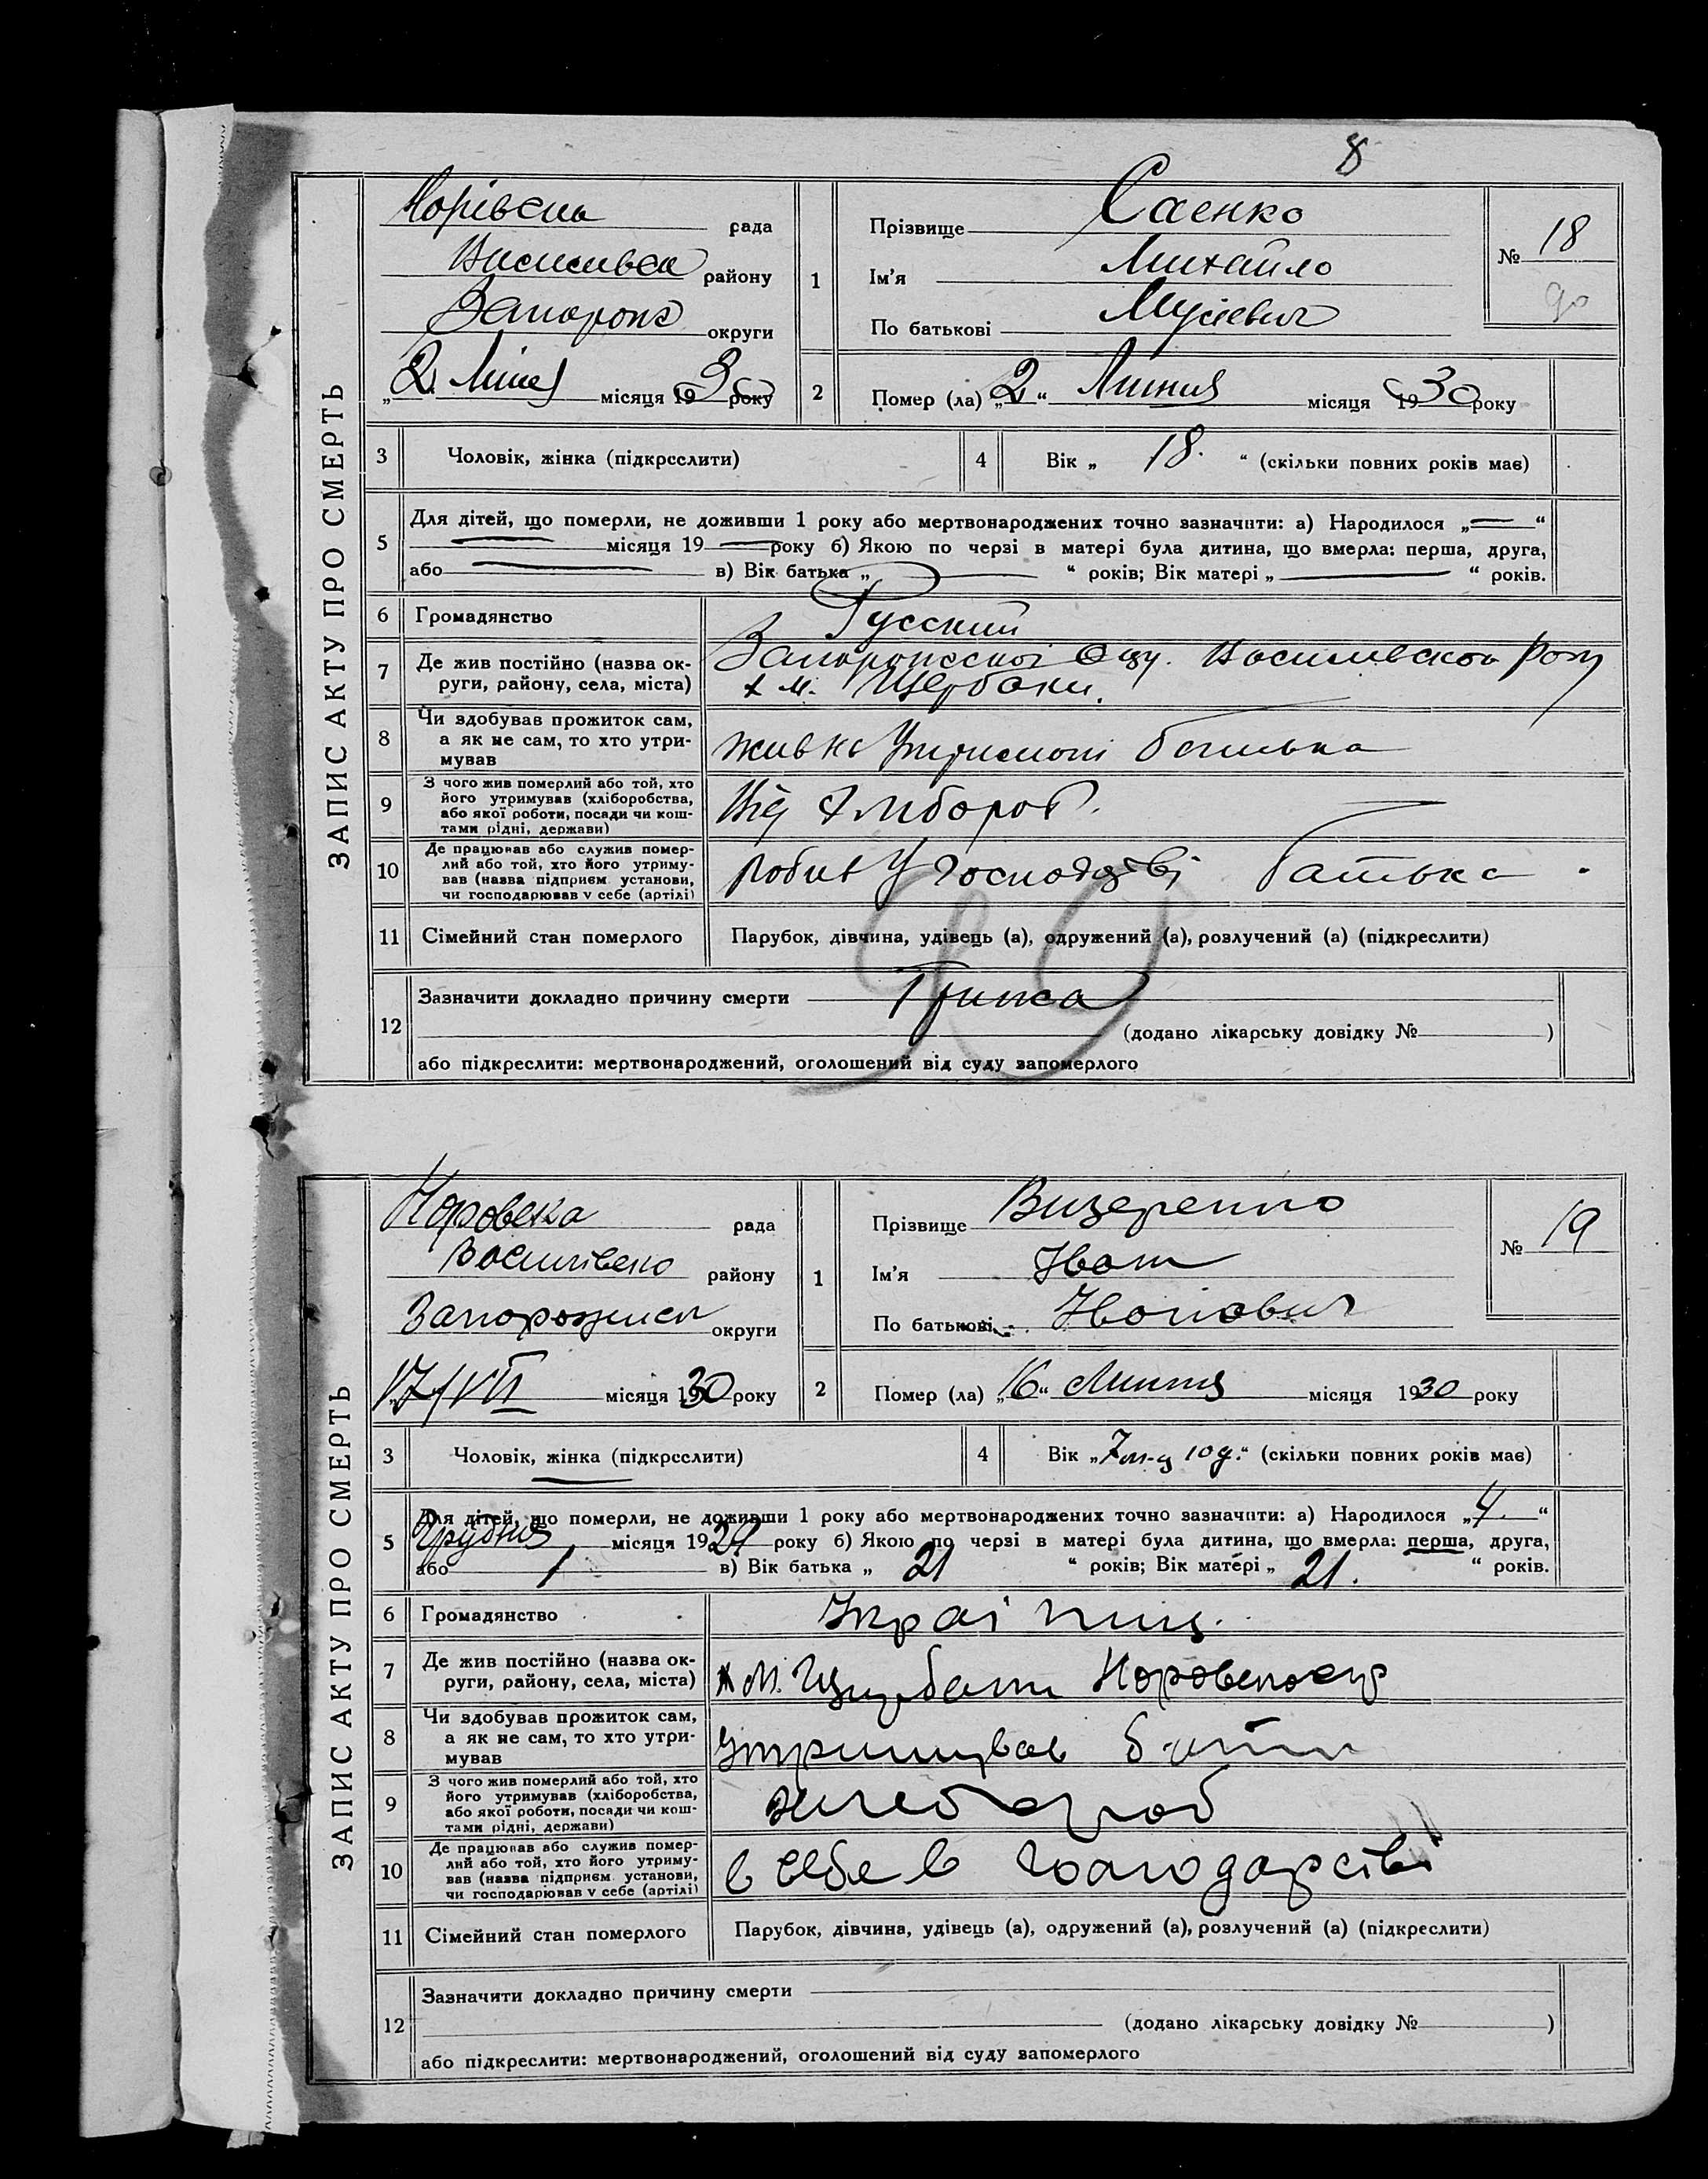 8
ЗАПИС АКТУ ПРО СМЕРТЬ
рада
району
округи
"2" місяця 1930 року
1
Прізвище Саенко
Ім'я Михайло
По батькові Мусіевич
№ 18
90
2
Помер (ла) "2" Липня місяця 1930 року
3
Чоловік, жінка (підкреслити)
4
Вік „ 18. “ (скільки повних років має)
5
Для дітей, що померли, не доживши 1 року або мертвонароджених точно зазначити: а) Народилося „—“
— місяця 19— року б) Якою по черзі в матері була дитина, що вмерла: перша, друга,
або — в) Вік батька „ — “ років; Вік матері „ — “ років.
6
Громадянство
Русский
7
Де жив постійно (назва ок-
руги, району, села, міста)
х м. Щербаки.
8
Чи здобував прожиток сам,
а як не сам, то хто утри-
мував
жив на батька
9
З чого жив померлий або той, хто
його утримував (хліборобства,
або якої роботи, посади чи кош-
тами рідні, держави)
Від хлібороб.
10
Де працював або служив помер-
лий або той, хто його утриму-
вав (назва підприєм. установи,
чи господарював у себе (артілі)
робив у батька
11
Сімейний стан померлого
Парубок, дівчина, удівець (а), одружений (а), розлучений (а) (підкреслити)
90
12
Зазначити докладно причину смерти Грижа
(додано лікарську довідку № )
або підкреслити: мертвонароджений, оголошений від суду запомерлого
ЗАПИС АКТУ ПРО СМЕРТЬ
рада
району
округи
17/VII місяця 1930 року
1
Прізвище
Ім'я Иван
По батькові Иванович
№ 19
2
Помер (ла) „16“ Липня місяця 1930 року
3
Чоловік, жінка (підкреслити)
4
Вік „7 м-ц 10 д.“ (скільки повних років має)
5
Для дітей, що померли, не доживши 1 року або мертвонароджених точно зазначити: а) Народилося „ “
Грудня місяця 1929 року б) Якою по черзі в матері була дитина, що вмерла: перша, друга,
або 1 в) Вік батька „ 21 “ років; Вік матері „ 21. “ років.
6
Громадянство
Украінец.
7
Де жив постійно (назва ок-
руги, району, села, міста)
х м.
8
Чи здобував прожиток сам,
а як не сам, то хто утри-
мував
утримував
9
З чого жив померлий або той, хто
його утримував (хліборобства,
або якої роботи, посади чи кош-
тами рідні, держави)
хлебороб
10
Де працював або служив помер-
лий або той, хто його утриму-
вав (назва підприєм. установи,
чи господарював у себе (артілі)
в себе в господарстві
11
Сімейний стан померлого
Парубок, дівчина, удівець (а), одружений (а), розлучений (а) (підкреслити)
12
Зазначити докладно причину смерти
(додано лікарську довідку № )
або підкреслити: мертвонароджений, оголошений від суду запомерлого